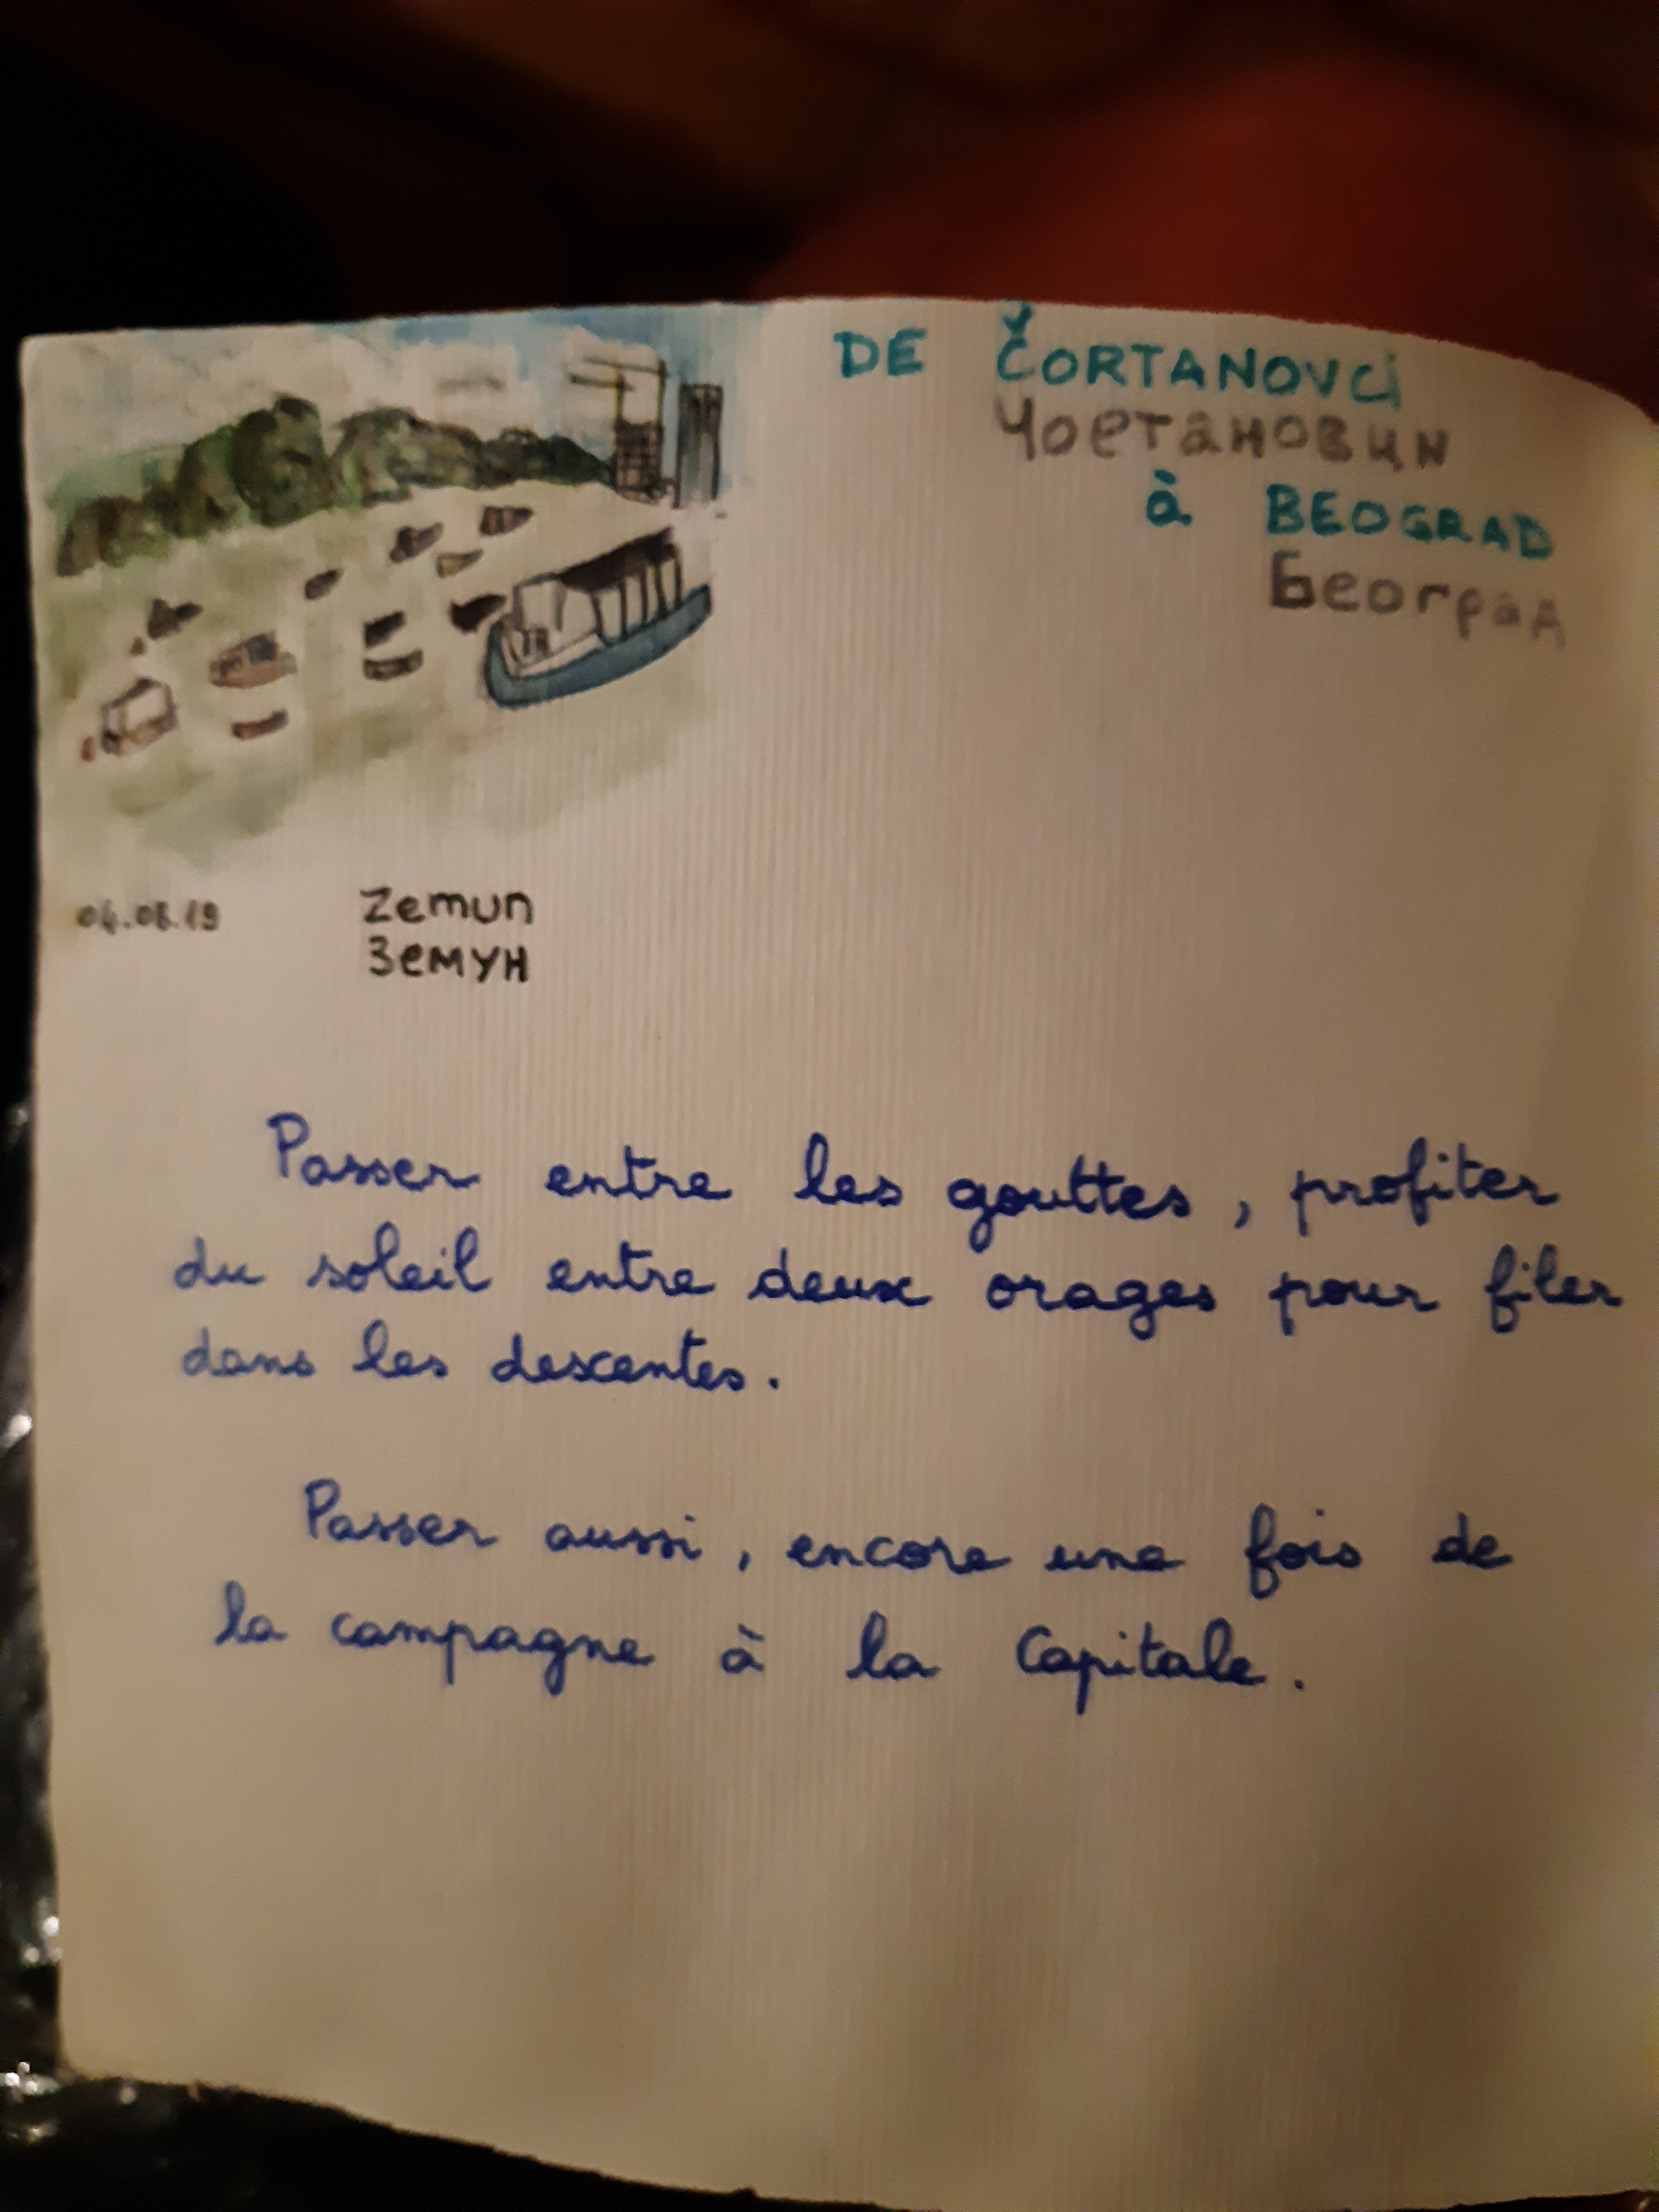 DE ČORTANOVCi
Чоетановци
à BEOGRAD
Београд
04.08.19
Zemun
Земун
Passer entre les gouttes, profiter
du soleil entre deux orages pour filer
dans les descentes.
Passer aussi, encore une fois de
la campagne à la Capitale.